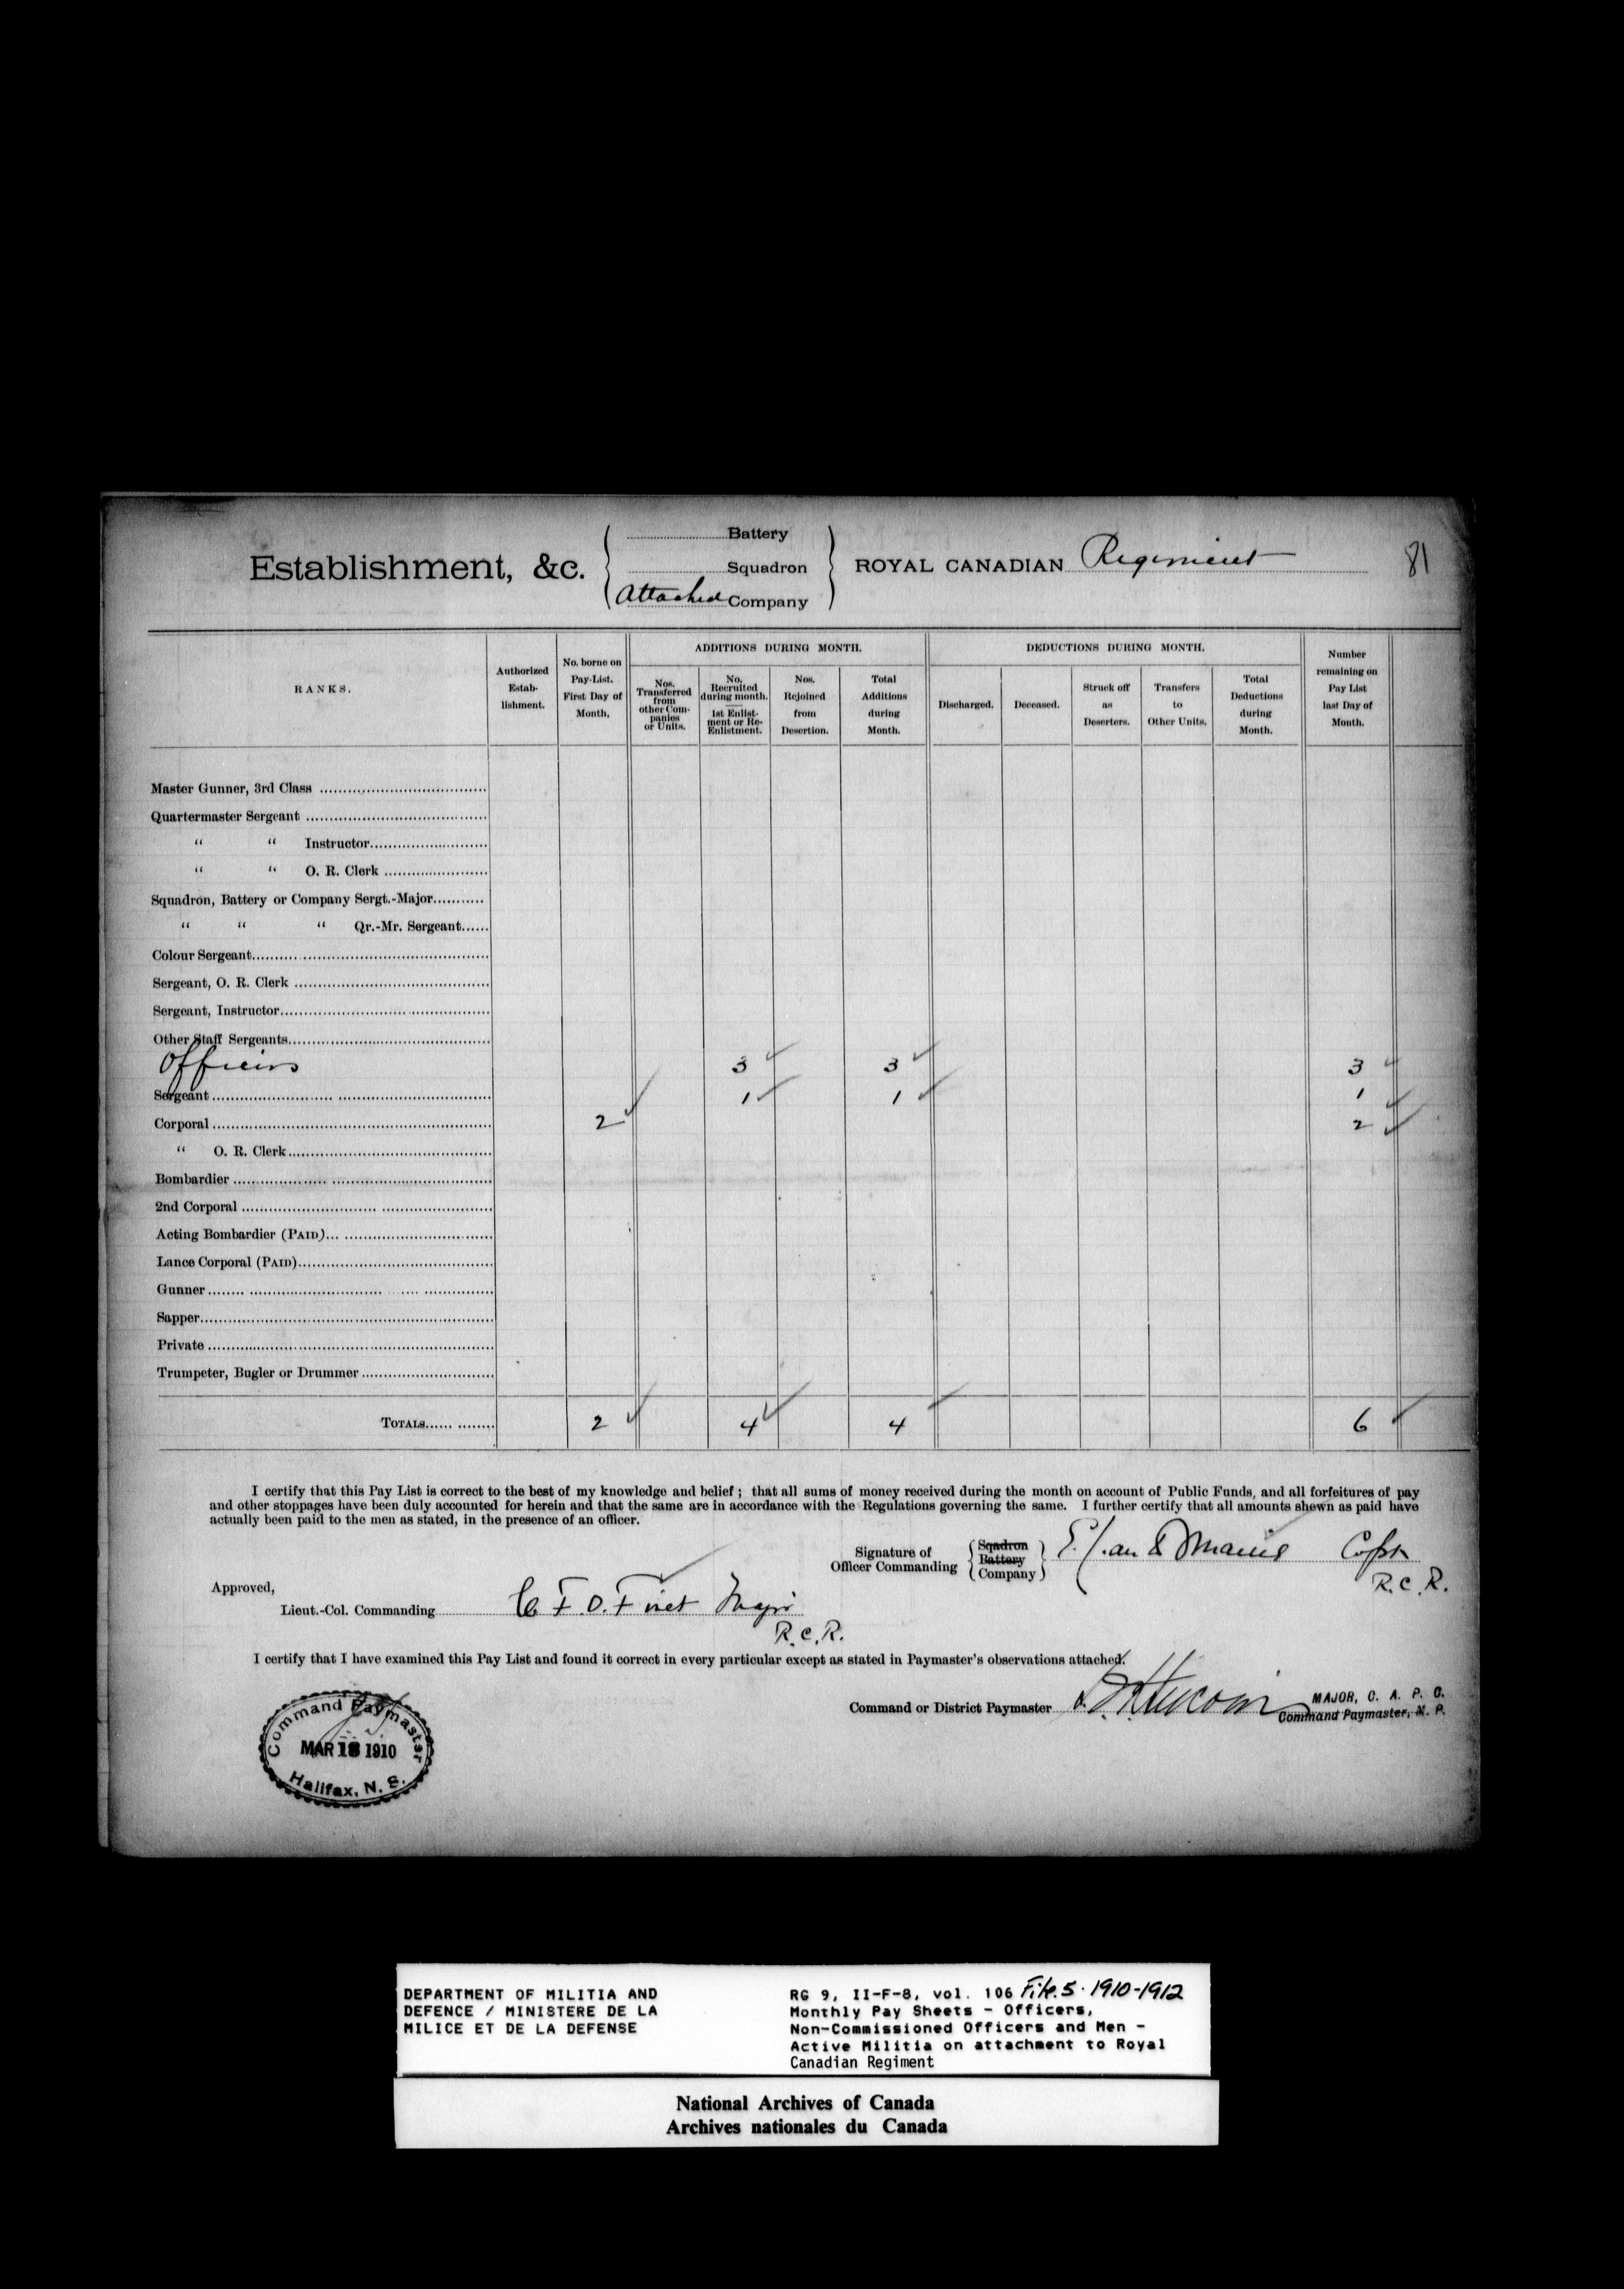 Battery
Establishment, &c. Squadron ROYAL CANADIAN Regiment 81
Attached Company
RANKS.
Authorized Estab-lishment.
No. borne on Pay-List. First Day of Month,
ADDITIONS DURING MONTH.
Nos. Transferred from other Com-panies or Units.
No. Recruited during month. 1st Enlist-ment or Re-Enlistment.
Nos. Rejoined from Desertion.
Total Additions during Month.
DEDUCTIONS DURING MONTH.
Discharged.
Deceased.
Struck off as Deserters.
Transfers to Other Units.
Total Deductions during Month.
Number remaining on Pay List last Day of Month.
Master Gunner, 3rd Class
Quartermaster Sergeant
" " Instructor
" " O. R. Clerk
Squadron, Battery or Company Sergt.-Major
" " " Qr.-Mr. Sergeant
Colour Sergeant
Sergeant, O. R. Clerk
Sergeant, Instructor
Other Staff Sergeants
Officers 3 3 3
Sergeant 1 1 1
Corporal 2 2
" O. R. Clerk
Bombardier
2nd Corporal
Acting Bombardier (PAID)
Lance Corporal (PAID)
Gunner
Sapper
Private
Trumpeter, Bugler or Drummer
TOTALS 2 4 4 6
I certify that this Pay List is correct to the best of my knowledge and belief ; that all sums of money received during the month on account of Public Funds, and all forfeitures of pay
and other stoppages have been duly accounted for herein and that the same are in accordance with the Regulations governing the same. I further certify that all amounts shewn as paid have
actually been paid to the men as stated, in the presence of an officer.
Signature of Officer Commanding
Sqadron
Battery
Company
Capt
R.C.R.
Approved,
Lieut.-Col. Commanding
Major
R.C.R.
I certify that I have examined this Pay List and found it correct in every particular except as stated in Paymaster's observations attached.
Command or District Paymaster
MAJOR, C. A. P. C.
Command Paymaster, M. P.
Command Paymaster
MAR 18 1910
Halifax, N. S.
DEPARTMENT OF MILITIA AND
DEFENCE / MINISTERE DE LA
MILICE ET DE LA DEFENSE
RG 9, II-F-8, vol. 106 File. 5. 1910-1912
Monthly Pay Sheets - Officers,
Non-Commissioned Officers and Men -
Active Militia on attachment to Royal
Canadian Regiment
National Archives of Canada
Archives nationales du Canada